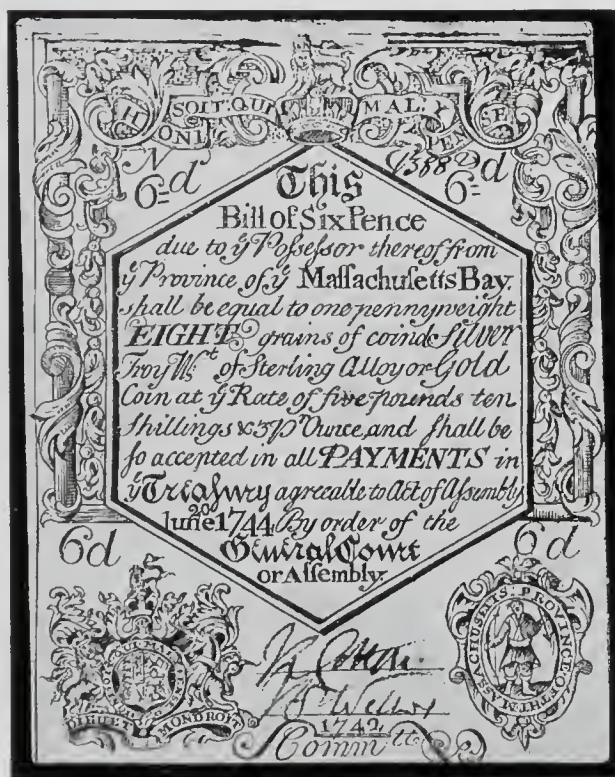 HONI SOIT QUI MAL Y PENSE
N 4388 D
6d 6d
This
Bill of Six Pence
due to yͤ Poſseſsor thereof from
yͤ Province of yͤ Maſſachuſetts Bay.
shall be equal to one pennyweight
EIGHT grains of coind ſilver
Troy Wᵗ. of Sterling Alloy or Gold
Coin at yͤ Rate of five pounds ten
ſhillings &3 P Ounce, and ſhall be
ſo accepted in all PAYMENTS in
yͤ Treaſury agreeable to Act of Aſsembly
June 20 1744 By order of the
General Court
or Aſſembly.
6d 6d
HONI SOIT QUI MAL Y PENSE
DIEU ET MON DROIT
MASSACHUSETTS: PROVINCE OF THE
1742
Commᵗᵗ